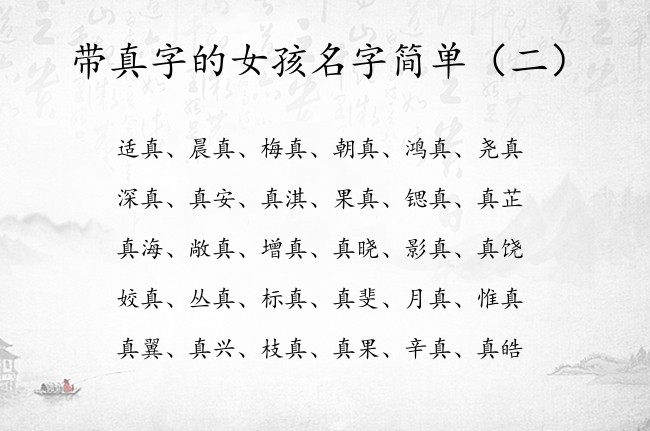 带真字的女孩名字简单（二）
适真、晨真、梅真、朝真、鸿真、尧真
深真、真安、真淇、果真、锶真、真芷
真海、敞真、增真、真晓、影真、真饶
姣真、丛真、标真、真斐、月真、惟真
真翼、真兴、枝真、真果、辛真、真皓